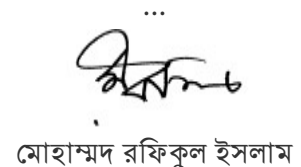 ...
মোহাম্মদ রফিকুল ইসলাম